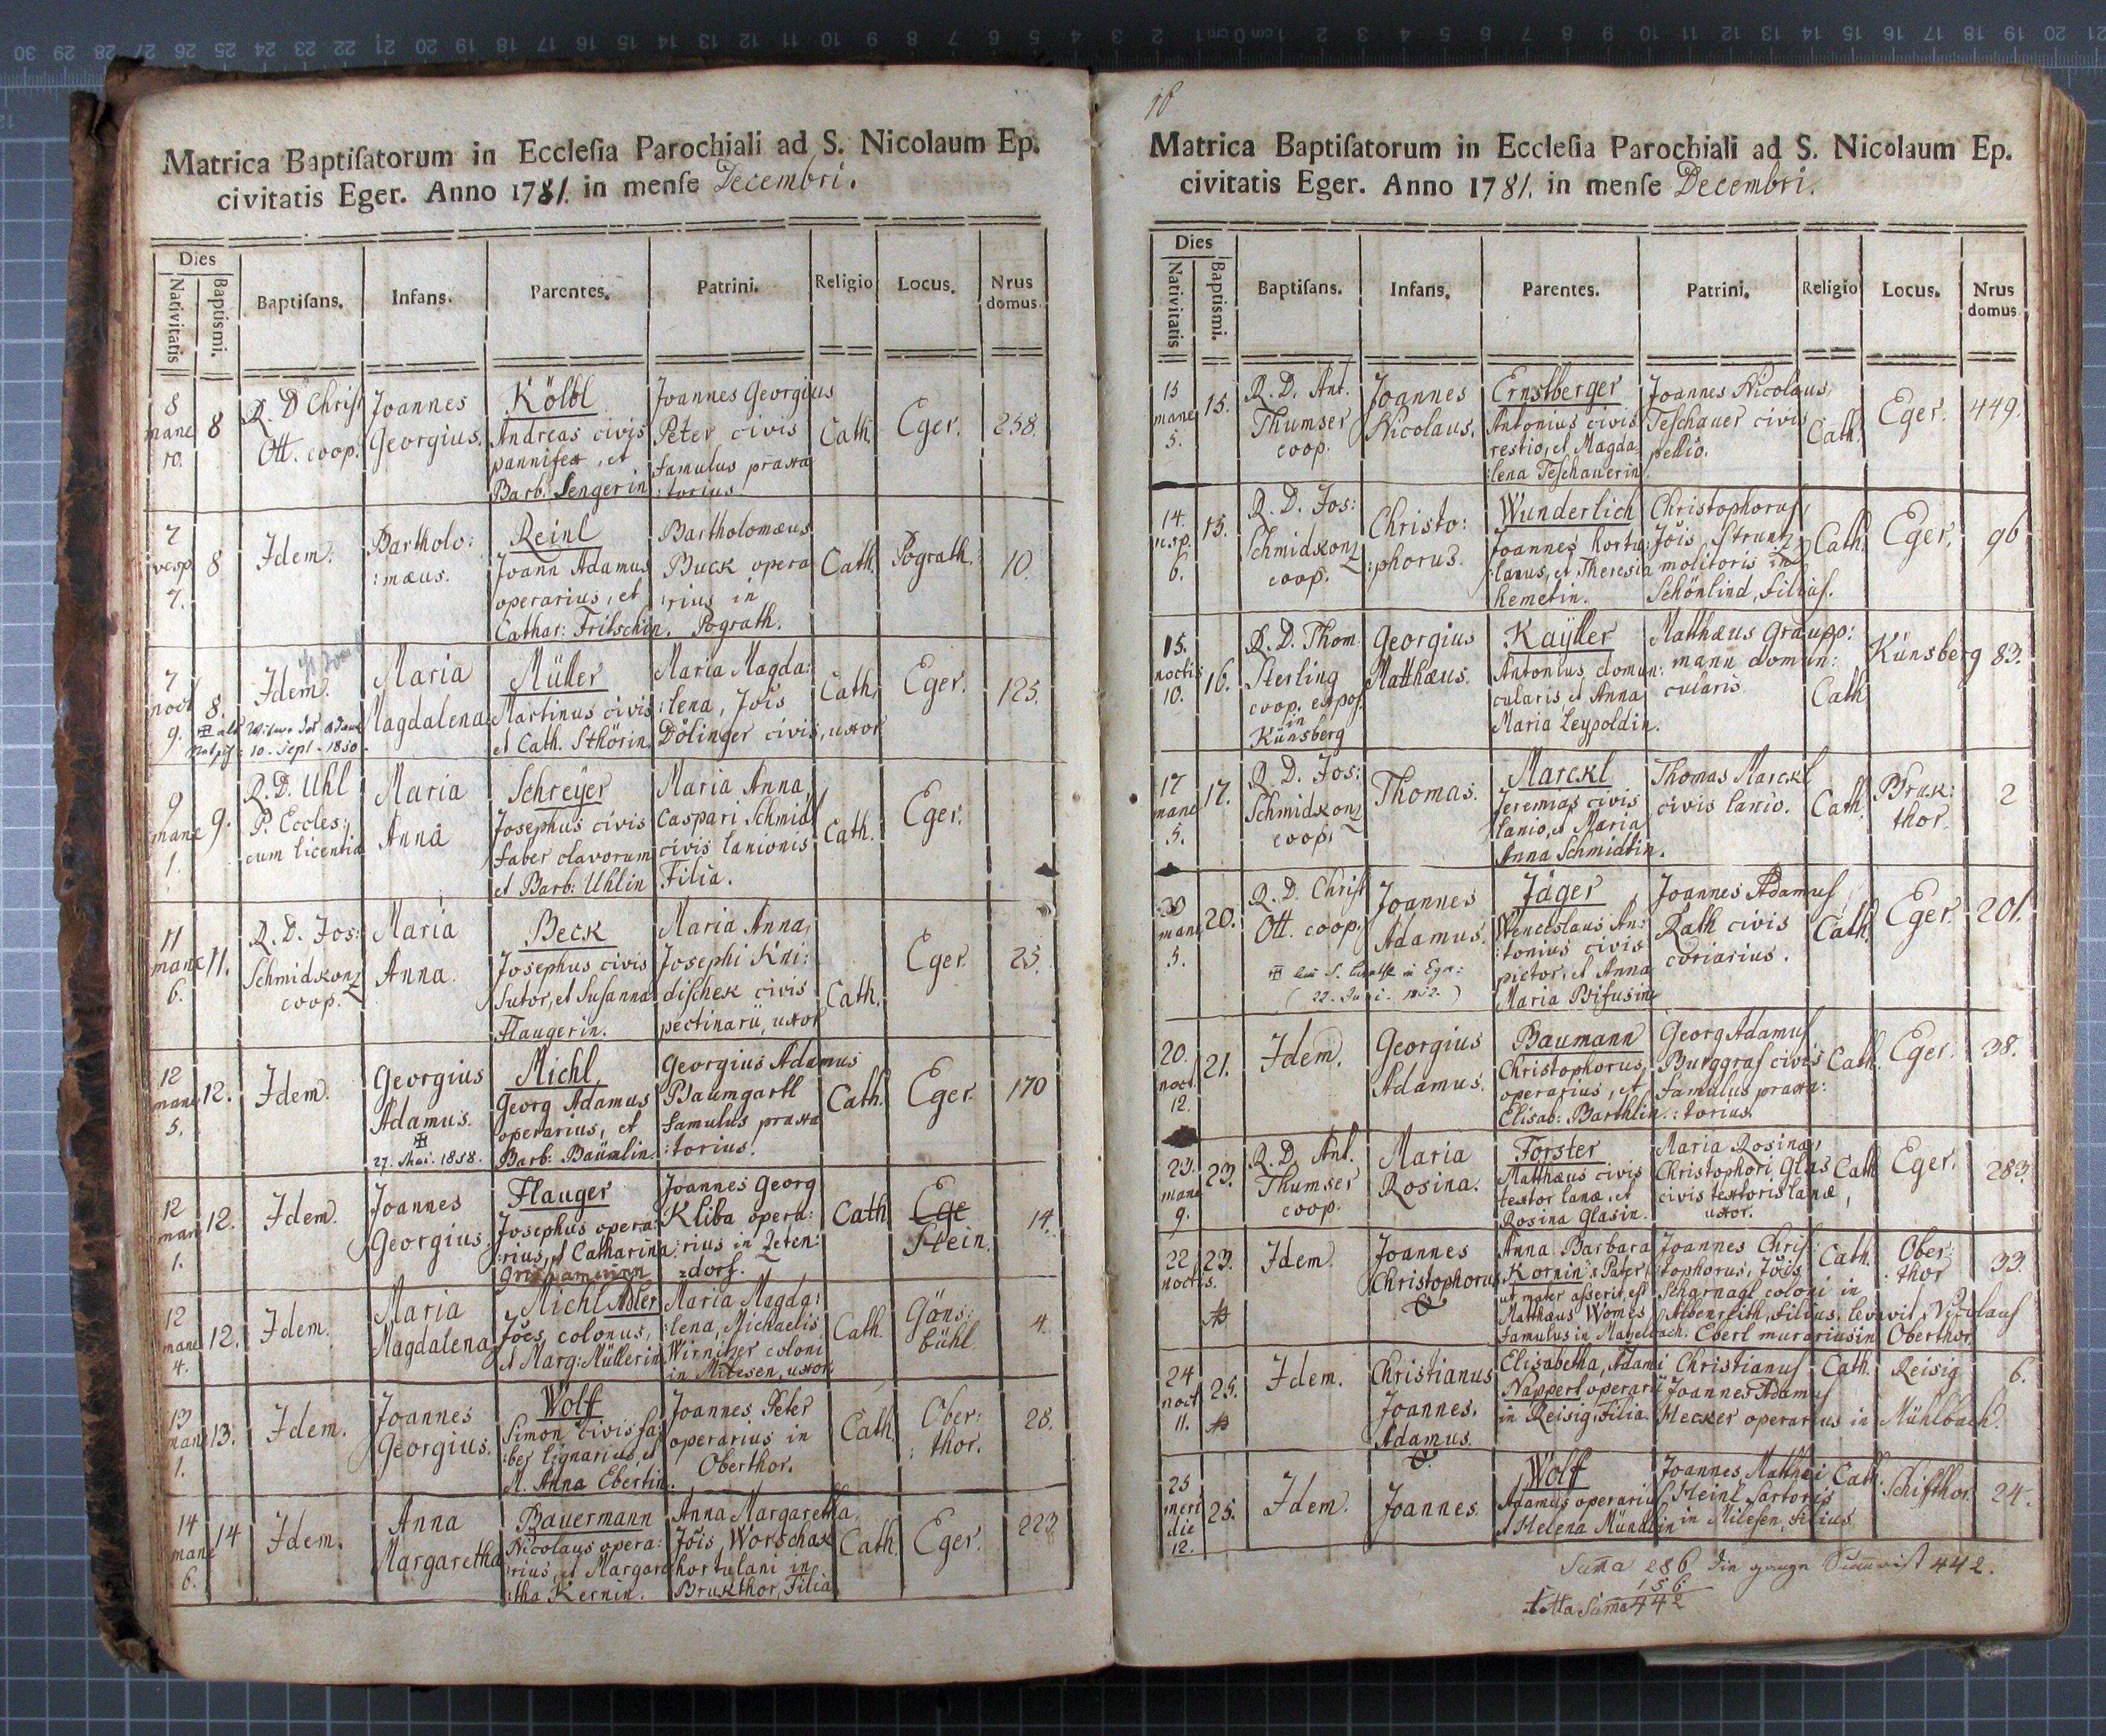 Matrica Baptiſatorum in Eccleſia Parochiali ad S. Nicolaum Ep.
civitatis Eger. Anno 1781. in menſe Decembri.
Dies
Nativitatis
Baptismi.
Baptiſans.
Infans.
Parentes.
Patrini.
Religio
Locus.
Nrus
domus.
8
mane
10.
8
R. D Christ
Ott. coop.
Joannes
Georgius.
Kölbl
Andreas civis
pannifex, et
Barb. Sengerin
Joannes Georgius
Peter civis
famulus præsta
:torius.
Cath.
Eger.
258.
7
vesp.
7.
8.
Idem.
Bartholo:
:mæus.
Reinl
Joann Adamus
operarius, et
Cathar: Fritschin.
Bartholomæus
Buck opera
:rius in
Pograth.
Cath.
Pograth.
10.
7
noct
9.
8.
Idem.
10. Sept. 1850.
Maria
Magdalena
Müller
Martinus civis
et Cath. Sthörin
Maria Magda:
:lena, Jois
Dölinger civis, uxor
Cath.
Eger.
125.
9
mane
1.
9.
R. D. Uhl
P. Eccles:
cum licentia
Maria
Anna
Schreyer
Josephus civis
faber clavorum
et Barb: Uhlin
Maria Anna,
Caspari Schmidl
civis lanionis
Filia.
Cath.
Eger.
11
mane
6.
11.
R. D. Jos:
Schmidkonz
coop.
Maria
Anna.
Beck
Josephus civis
Sutor, et Susanna
Flaugerin.
Maria Anna,
Josephi Kni:
dischek civis
pectinarii, uxor
Cath.
Eger.
25.
12
mane
5.
12.
Idem.
Georgius
Adamus.
27. Mai. 1858.
Michl
Georg Adamus
operarius, et
Barb: Bäumlin
Georgius Adamus
Baumgartl
famulus præsta
:torius.
Cath.
Eger.
170
12
mane
1.
12.
Idem.
Joannes
Georgius
Flauger
Josephus opera:
:rius, et Catharina
Joannes Georg
Kliba opera:
:rius in Zeten:
=dorf.
Cath
Ege
Stein.
14.
12
mane
4.
12.
Idem.
Maria
Magdalena
Michl Adler
Joes, colonus,
et Marg: Müllerin
Maria Magda:
:lena, Michaelis
Wirnitzer coloni
in Milesen, uxor
Cath.
Gäns:
bühl
4.
13
mane
1.
13.
Idem.
Joannes
Georgius.
Wolf
Simon civis fa:
:ber lignarius, et
M. Anna Ebertin.
Joannes Peter
operarius in
Oberthor.
Cath.
Ober:
:thor.
28.
14
mane
6.
14
Idem.
Anna
Margaretha
Bauermann
Nicolaus opera:
:rius, et Margare
:tha Kernin.
Anna Margaretha,
Jois Worschak
hortulani in
Brukthor, Filia
Cath.
Eger.
223.
Matrica Baptiſatorum in Eccleſia Parochiali ad S. Nicolaum Ep.
civitatis Eger. Anno 1781. in menſe Decembri.
Dies
Nativitatis
Baptismi.
Baptiſans.
Infans.
Parentes.
Patrini.
Religio
Locus.
Nrus
domus.
15
mane
5.
15.
R. D. Ant.
Thumser
coop.
Joannes
Nicolaus.
Ernstberger
Antonius civis
restio, et Magda
:lena Teschauerin
Joannes Nicolaus,
Teschauer civis
pellio.
Cath.
Eger.
449.
14.
vesp.
6.
15.
R. D. Jos:
Schmidkonz
coop.
Christo:
:phorus.
Wunderlich
Joannes hortu:
:lanus, et Theresia
hemetin.
Christophorus,
Jois Struntz
molitoris in
Schönlind, Filius.
Cath.
Eger.
96
15.
noctis
10.
16.
R. D. Thom.
Sterling
coop. expos.
in
Künsberg
Georgius
Matthæus.
Kayller
Antonius domun:
cularis, et Anna
Maria Leypoldin.
Matthæus Graupp:
mann domun:
cularis.
Cath
Künsberg
83.
17
mane
5.
17.
R. D. Jos:
Schmidkonz
coop.
Thomas.
Marckl
Jeremias civis
lanio, et Maria
Anna Schmidtin.
Thomas Marckl
civis lanio.
Cath.
Bruk:
thor.
2
20
mane
5.
20.
R. D. Christ
Ott. coop.
Joannes
Adamus.
Jäger
Wenceslaus An:
:tonius civis
pictor, et Anna
Maria Bifusin
Joannes Adamus
Rath civis
coriarius.
Cath.
Eger.
201.
20.
noct.
12.
21.
Idem.
Georgius
Adamus.
Baumann
Christophorus
operarius, et
Elisab: Barthlin
Georg Adamus
Burggraf civis
famulus præsta:
:torius.
Cath.
Eger.
38.
23.
mane
9.
23.
R. D. Ant.
Thumser
coop.
Maria
Rosina.
Forster
Matthæus civis
textor lanæ, et
Rosina Glasin.
Maria Rosina,
Christophori Glas
civis textoris lanæ,
uxor.
Cath
Eger.
283.
22
noctis.
23.
Idem.
Joannes
Christophorus
Anna Barbara
Kornin: Pater,
ut mater asserit, est
Matthæus Womes
famulus in Matzelbach.
Joannes Chris:
tophorus, Jois
Scharnagl coloni in
Albenreith, Filius. levavit Nicolaus
Eberl murarius in Oberthor
Cath.
Ober:
:thor
33.
24
noct
11.
25.
Idem.
Christianus
Joannes.
Adamus.
Elisabetha, Adami
Napperl operarii
in Reisig, Filia.
Christianus
Joannes Adamus
Hecker operarius in Mühlbach.
Cath.
Reisig
6.
25
meri
die
12.
25.
Idem.
Joannes.
Wolf
Adamus operarius
et Helena Mündlin
Joannes, Matthæi
Heinl sartoris
in Milesen, Filius
Cath.
Schifthor.
24.
Suma 286
156
442